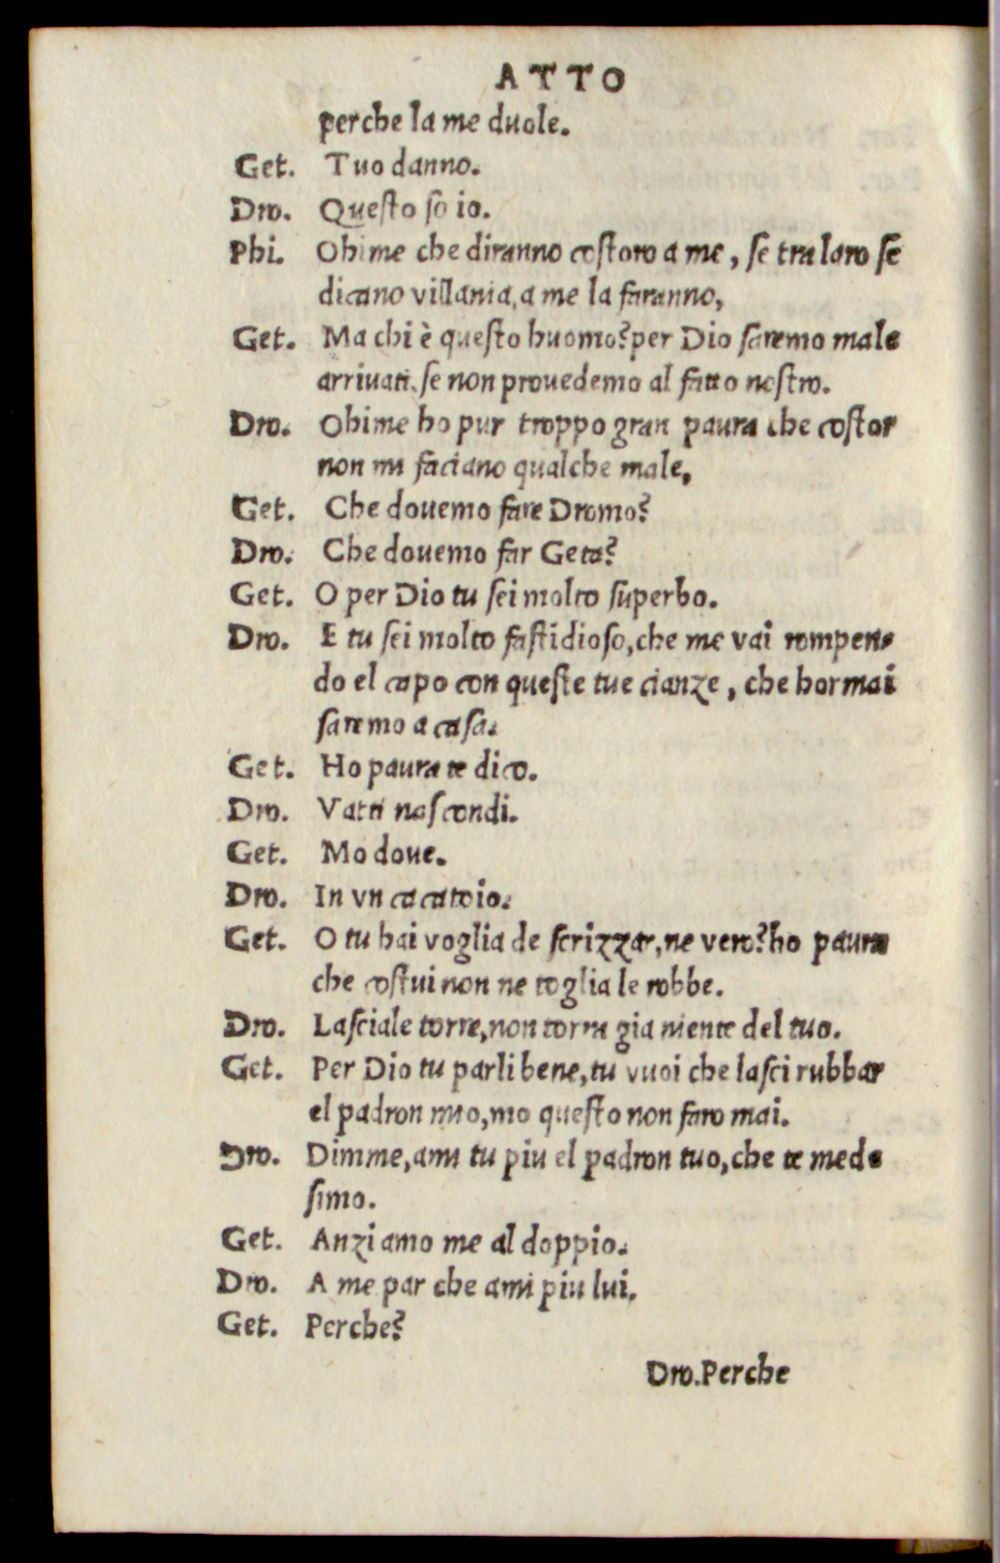 ATTO
perche la me duole.
Get. Tuo danno.
Dro. Questo so io.
Phi. Ohime che diranno costoro a me, se tra laro se
dicano villania, a me la faranno,
Get. Ma chi è questo huomo? per Dio saremo male
arriuati, se non prouedemo al fatto nostro.
Dro. Ohime ho pur troppo gran paura che costor
non mi faciano qualche male,
Get. Che douemo fare Dromo?
Dro. Che douemo far Geta?
Get. O per Dio tu sei molto superbo.
Dro. E tu sei molto fastidioso, che me vai rompen-
do el capo con queste tue cianze, che hormai
saremo a casa.
Get. Ho paura te dico.
Dro. Vatti nascondi.
Get. Mo doue.
Dro. In vn cacatoio.
Get. O tu hai voglia de scrizzar, ne vero? ho paura
che costui non ne toglia le robbe.
Dro. Lasciale torre, non torra gia niente del tuo.
Get. Per Dio tu parli bene, tu vuoi che lasci rubbar
el padron mio, mo questo non faro mai.
Dro. Dimme, ami tu piu el padron tuo, che te mede
simo.
Get. Anzi amo me al doppio.
Dro. A me par che ami piu lui.
Get. Perche?
Dro. Perche